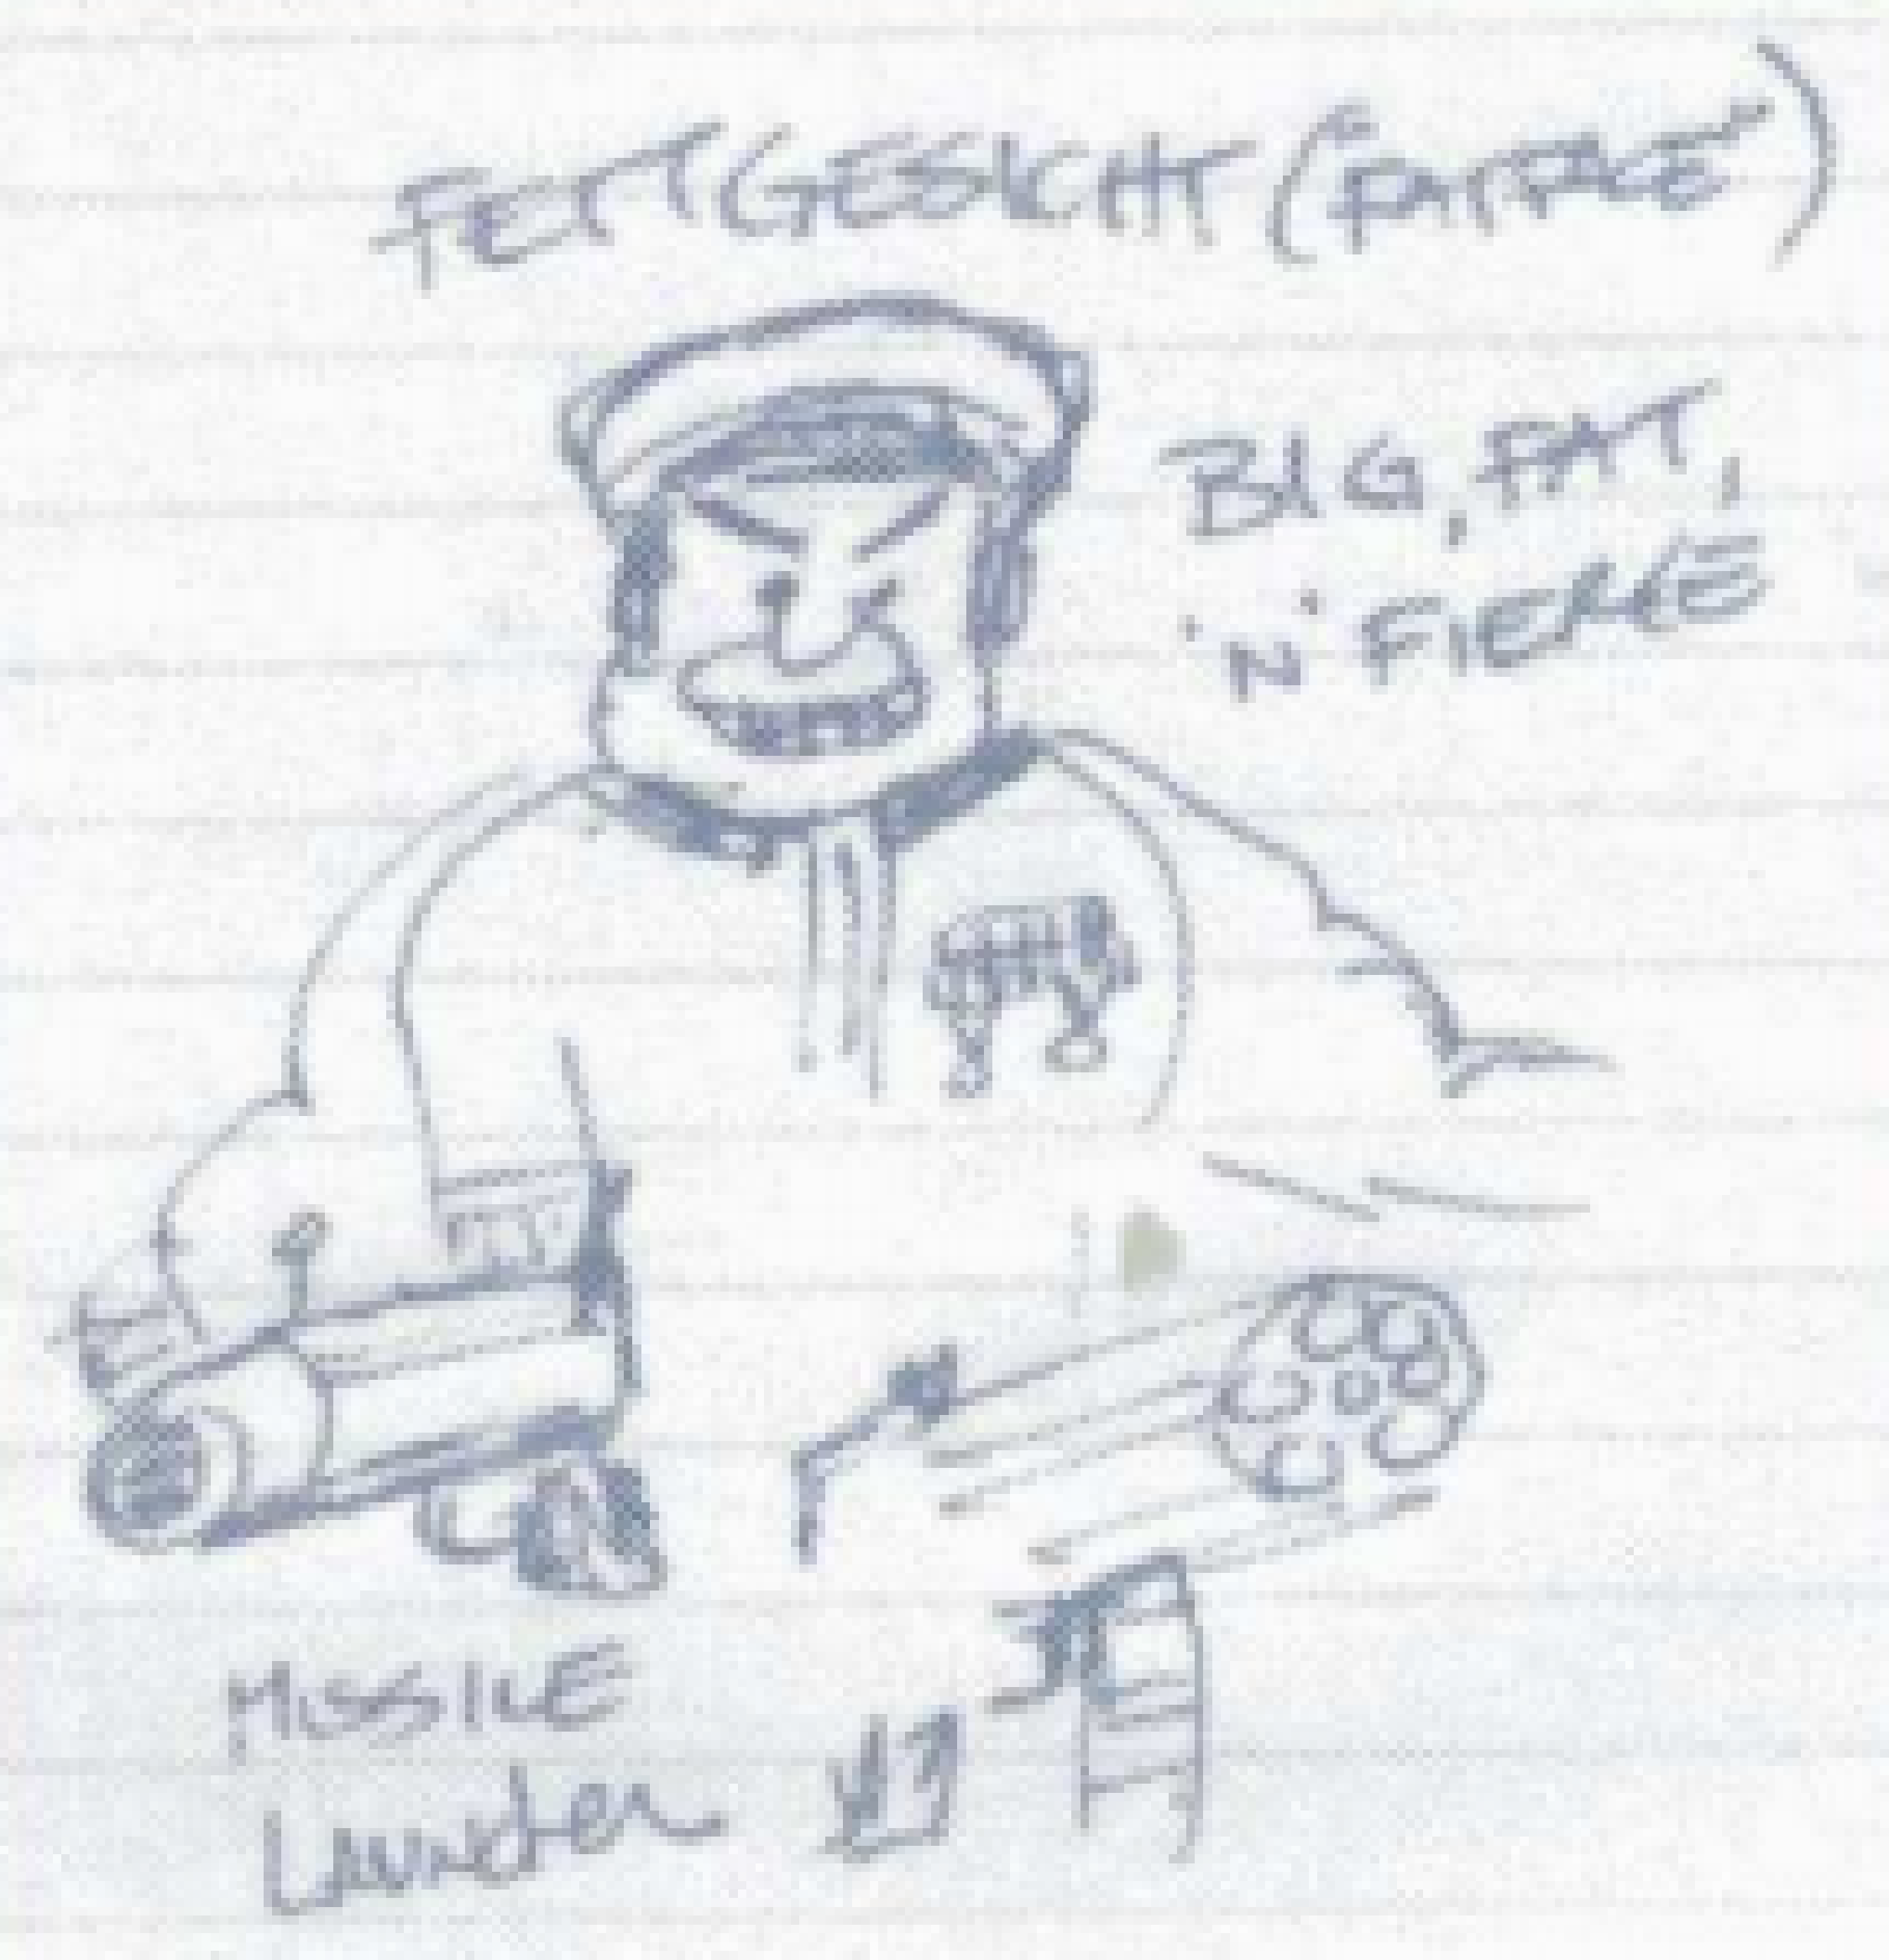 FETTGESICHT ("FATFACE")
BIG, FAT,
'N' FIERCE
MISSILE
LAUNCHER